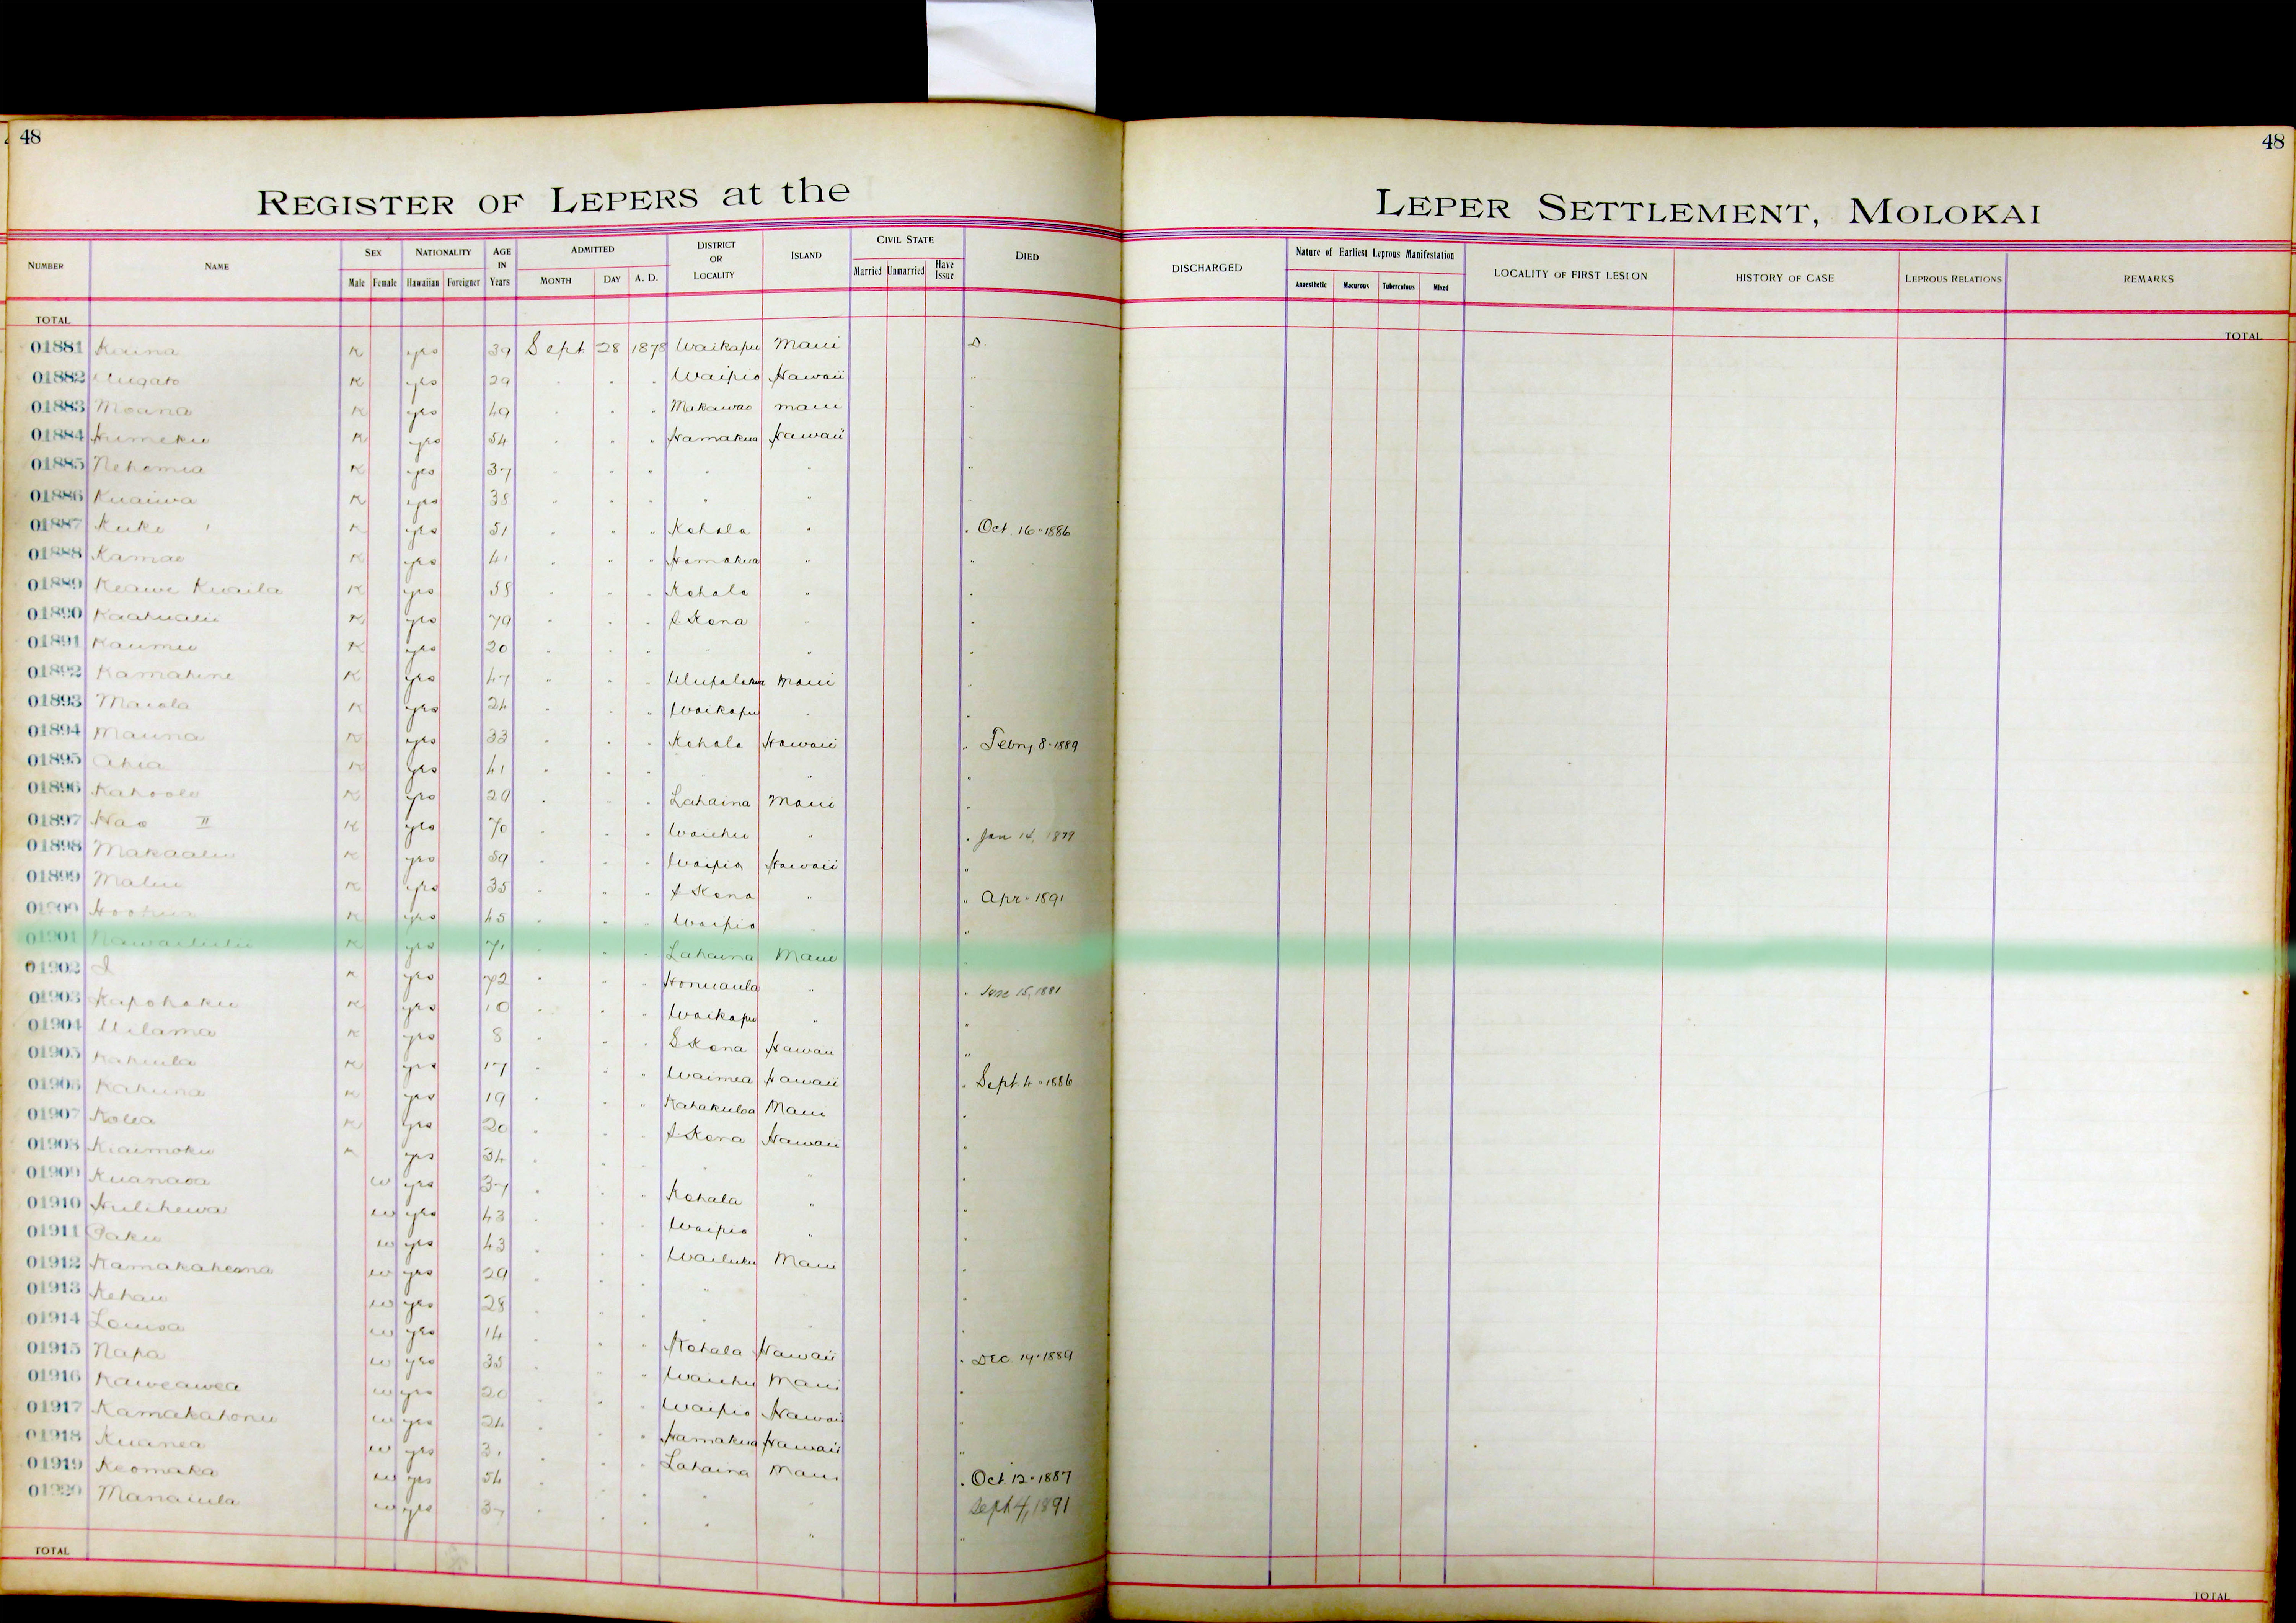 48
48
REGISTER OF LEPERS at the
LEPER SETTLEMENT, MOLOKAI
NUMBER NAME SEX NATIONALITY AGE IN Years ADMITTED DISTRICT OR LOCALITY ISLAND CIVIL STATE DIED
Male Female Hawaiian Foreigner MONTH DAY A. D. Married Unmarried Have Issue
DISCHARGED Nature of Earliest Leprous Manifestation LOCALITY OF FIRST LESION HISTORY OF CASE LEPROUS RELATIONS REMARKS
Anaesthetic Macurous Tuberculous Mixed
TOTAL
TOTAL
01881 K yes 39 Sept 28 1878 Waikapu Maui D.
01882 K yes 29 " " " Waipio Hawaii "
01883 Moana K yes 49 " " " Makawao Maui "
01884 Humeku K yes 54 " " " Hamakua Hawaii "
01885 Nehemia K yes 37 " " " " " "
01886 Kuaiwa K yes 38 " " " " " "
01887 Kuke K yes 51 " " " Kohala " " Oct. 16-1886
01888 Kamao K yes 41 " " " Hamakua " "
01889 Keawe Kuaila K yes 58 " " " Kohala " "
01890 Kaahualii K yes 79 " " " Kona " "
01891 Kaumu K yes 20 " " " " " "
01892 Kamahine K yes 47 " " " Ulupalakua Maui "
01893 Maiola K yes 24 " " " Waikapu " "
01894 Mauna K yes 33 " " " Kohala Hawaii " Febry 8-1889
01895 Ahia K yes 41 " " " " " "
01896 Kahoole K yes 29 " " " Lahaina Maui "
01897 Hao II K yes 70 " " " Waiehu " " Jan 14, 1879
01898 Makaalu K yes 59 " " " Waipio Hawaii "
01899 Malu K yes 35 " " " Kona " " Apr. 1891
01900 K yes 45 " " " Waipio " "
01901 K yes 71 " " " Lahaina Maui "
01902 I K yes 72 " " " Honuaula " " June 15, 1881
01903 Kapohaku K yes 10 " " " Waikapu " "
01904 Uilama K yes 8 " " " S Kona Hawaii "
01905 K yes 17 " " " Waimea Hawaii " Sept. 4-1886
01906 Kahuna K yes 19 " " " Kahakuloa Maui "
01907 Kolea K yes 20 " " " Kona Hawaii "
01908 Kiaimoku K yes 34 " " " " " "
01909 Kuanaoa w yes 37 " " " Kohala " "
01910 Hulihewa w yes 43 " " " Waipio " "
01911 Paku w yes 43 " " " Wailuku Maui "
01912 w yes 29 " " " " "
01913 Kehau w yes 28 " " " " "
01914 Louisa w yes 14 " " " Kohala Hawaii " Dec. 19-1889
01915 Napa w yes 35 " " " Waiehu Maui "
01916 Kaweawea w yes 20 " " " Waipio Hawaii "
01917 Kamakahonu w yes 24 " " " Hamakua Hawaii "
01918 Kuanea w yes 31 " " " Lahaina Maui " Oct. 12-1887
01919 Keomaka w yes 54 " " " " " Sept 4, 1891
01920 Manaiula w yes 37 " " " " " "
TOTAL
TOTAL